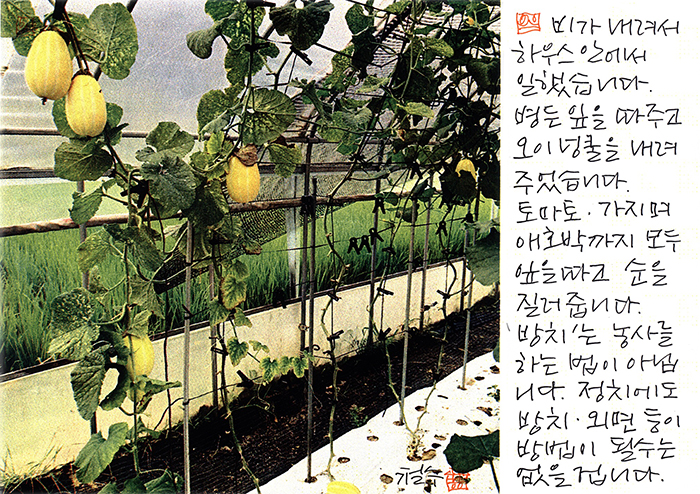 비가 내려서
하우스 안에서
일했습니다.
병든 잎을 따주고
오이넝쿨을 내려
주었습니다.
토마토·가지며
애호박까지 모두
잎을따고 순을
질러줍니다.
'방치'는 농사를
하는 법이 아닙
니다. 정치에도
방치·외면 등이
방법이 될수는
없을겁니다.
철수